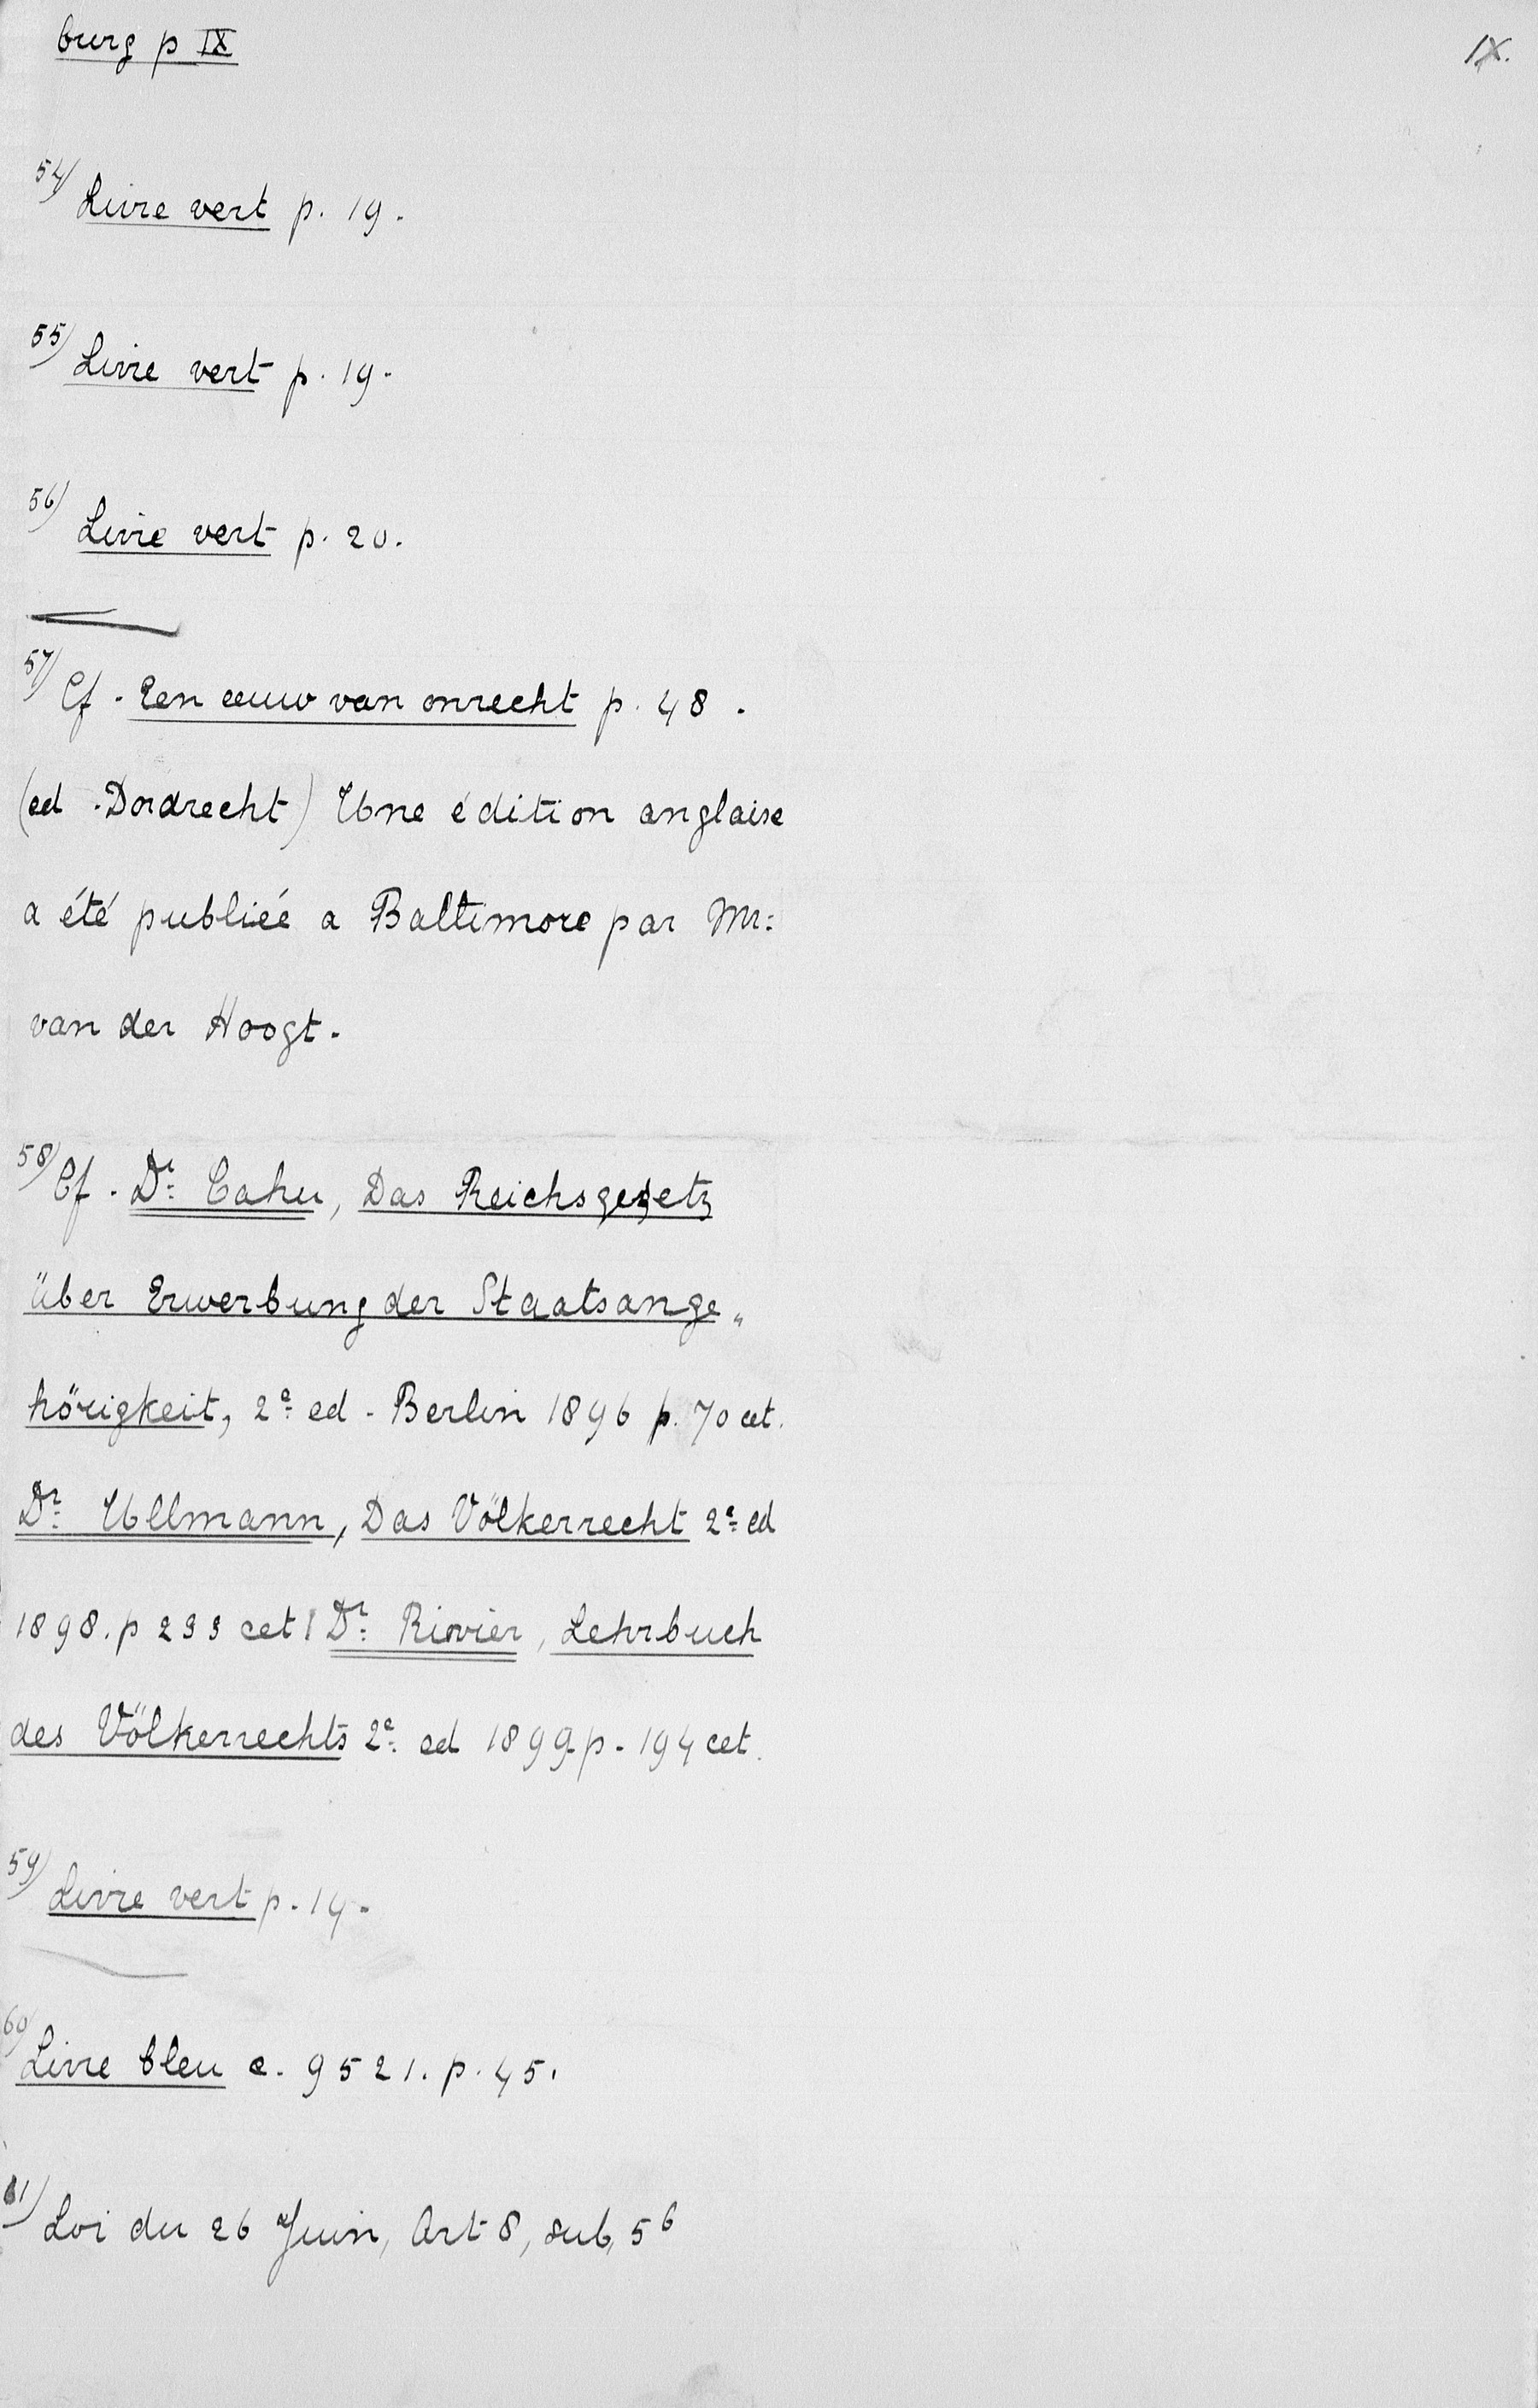 burg p IX
IX.
54) Livre vert p. 19.
55) Livre vert p. 19.
56) Livre vert p. 20.
57) Cf. Een eeuw van onrecht p. 48.
(ed. Dordrecht) Une édition anglaise
a été publiéé a Baltimore par Mr:
van der Hoogt.
58) Cf. Dr: Cahu, Das Reichsgesetz
über Erwerbung der Staatsange„
hörigkeit, 2e ed. Berlin 1896 p. 70 cet.
Dr: Ullmann, Das Völkerrecht 2e ed
1898. p 233 cet / Dr: Rivier, Lehrbuch
des Völkerrechts 2e ed 1899 p. 194 cet.
59) Livre vert p. 19.
60) Livre bleu c. 9521. p. 45.
61) Loi du 26 Juin, Art 8, sub, 5b